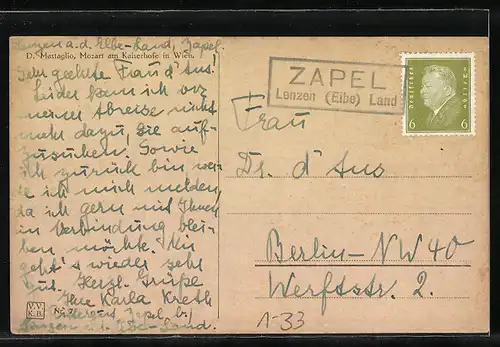 Lenzen a.d. Elbe-Land, Zapel.
D. Mastaglio, Mozart am Kaiserhofe in Wien.
Sehr geehrte Frau d'Aus!
Leider kam ich vor
meiner Abreise nicht
mehr dazu, Sie auf-
zusuchen. Sowie
ich zurück bin wer-
de ich mich melden,
da ich gern mit Ihnen
in Verbindung blei-
ben möchte. Mir
geht's wieder sehr
gut. Herzl. Grüße
Ihre Karla Kreth
Zapel b/
Lenzen a. d. Elbe-Land.
V.V.
K.B.
ZAPEL
Lenzen (Elbe) Land
Deutsches Reich
6 6
Frau
Dr. d'Aus
Berlin-NW 40
Werftstr. 2.
A-33